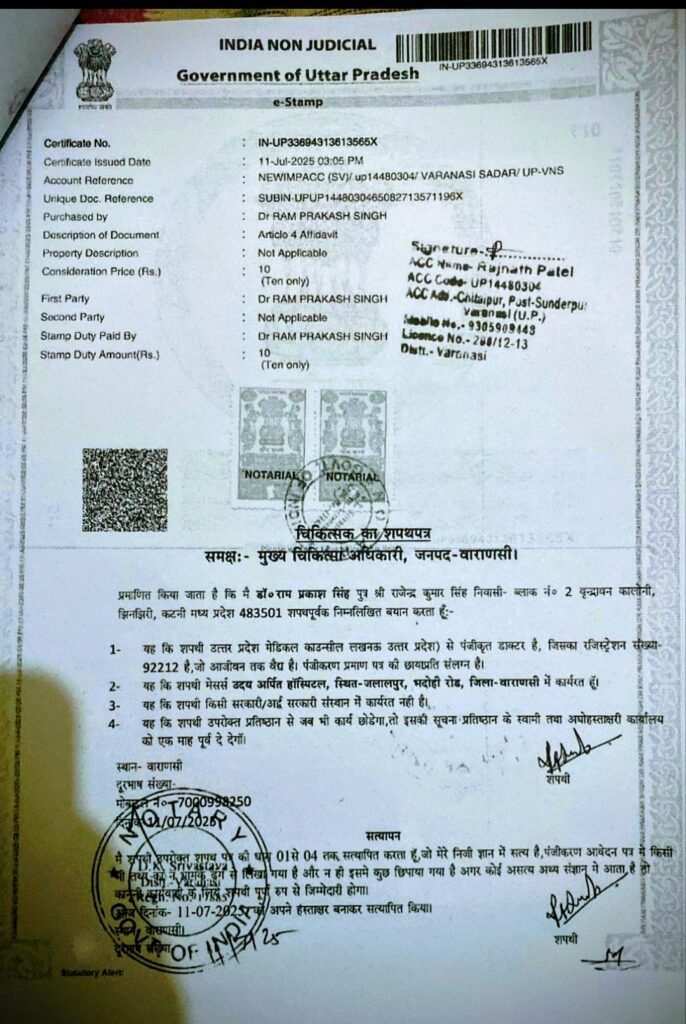 INDIA NON JUDICIAL
IN-UP33694313613565X
Government of Uttar Pradesh
सत्यमेव जयते
e-Stamp
Certificate No. : IN-UP33694313613565X
Certificate Issued Date : 11-Jul-2025 03:05 PM
Account Reference : NEWIMPACC (SV)/ up14480304/ VARANASI SADAR/ UP-VNS
Unique Doc. Reference : SUBIN-UPUP1448030465082713571196X
Purchased by : Dr RAM PRAKASH SINGH
Description of Document : Article 4 Affidavit
Property Description : Not Applicable
Consideration Price (Rs.) : 10
(Ten only)
First Party : Dr RAM PRAKASH SINGH
Second Party : Not Applicable
Stamp Duty Paid By : Dr RAM PRAKASH SINGH
Stamp Duty Amount(Rs.) : 10
(Ten only)
Signature-
ACC Name- Rajnath Patel
ACC Code- UP14480304
ACC Add.-Chitaipur, Post-Sunderpur
Varanasi (U.P.)
Mobile No.- 9305909448
Licence No.- 208/12-13
Distt.- Varanasi
NOTARIAL NOTARIAL
चिकित्सक का शपथपत्र
समक्ष:- मुख्य चिकित्सा अधिकारी, जनपद-वाराणसी।
प्रमाणित किया जाता है कि मै डॉ०राम प्रकाश सिंह पुत्र श्री राजेन्द्र कुमार सिंह निवासी- ब्लाक नं० 2 वृन्दावन कालोनी,
झिनझिरी, कटनी मध्य प्रदेश 483501 शपथपूर्वक निम्नलिखित बयान करता हूँ:-
1- यह कि शपथी उत्तर प्रदेश मेडिकल काउन्सील लखनऊ उत्तर प्रदेश) से पंजीकृत डाक्टर है, जिसका रजिस्ट्रेशन संख्या-
92212 है,जो आजीवन तक वैद्य है। पंजीकरण प्रमाण पत्र की छायाप्रति संलग्न है।
2- यह कि शपथी मेसर्स उदय अर्पित हॉस्पिटल, स्थित-जलालपुर, भदोही रोड, जिला-वाराणसी में कार्यरत हूँ।
3- यह कि शपथी किसी सरकारी/अर्द्ध सरकारी संस्थान में कार्यरत नही है।
4- यह कि शपथी उपरोक्त प्रतिष्ठान से जब भी कार्य छोडेगा,तो इसकी सूचना प्रतिष्ठान के स्वामी तथा अघोहस्ताक्षरी कार्यालय
को एक माह पूर्व दे देगॉ।
शपथी
स्थान- वाराणसी
दूरभाष संख्या-
मोबाइल नं०- 7000998250
दिनांक-11/07/2025
सत्यापन
मै शपथी उपरोक्त शपथ पत्र की धारा 01से 04 तक सत्यापित करता हूँ,जो मेरे निजी ज्ञान में सत्य है,पंजीकरण आवेदन पत्र मे किसी
भी तथ्य को न भ्रामक ढंग से लिखा गया है और न ही इसमे कुछ छिपाया गया है अगर कोई असत्य तथ्य संज्ञान मे आता है तो
कानूनी कार्यवाही के लिए शपथी पूर्ण रुप से जिम्मेदारी होगा।
आज दिनांक- 11-07-2025 को अपने हस्ताक्षर बनाकर सत्यापित किया।
स्थान- वाराणसी।
दूरभाष संख्या
शपथी
NOTARY
D.K. Srivastava
Distt.-Varanasi
GOVT. OF INDIA
Statutory Alert: